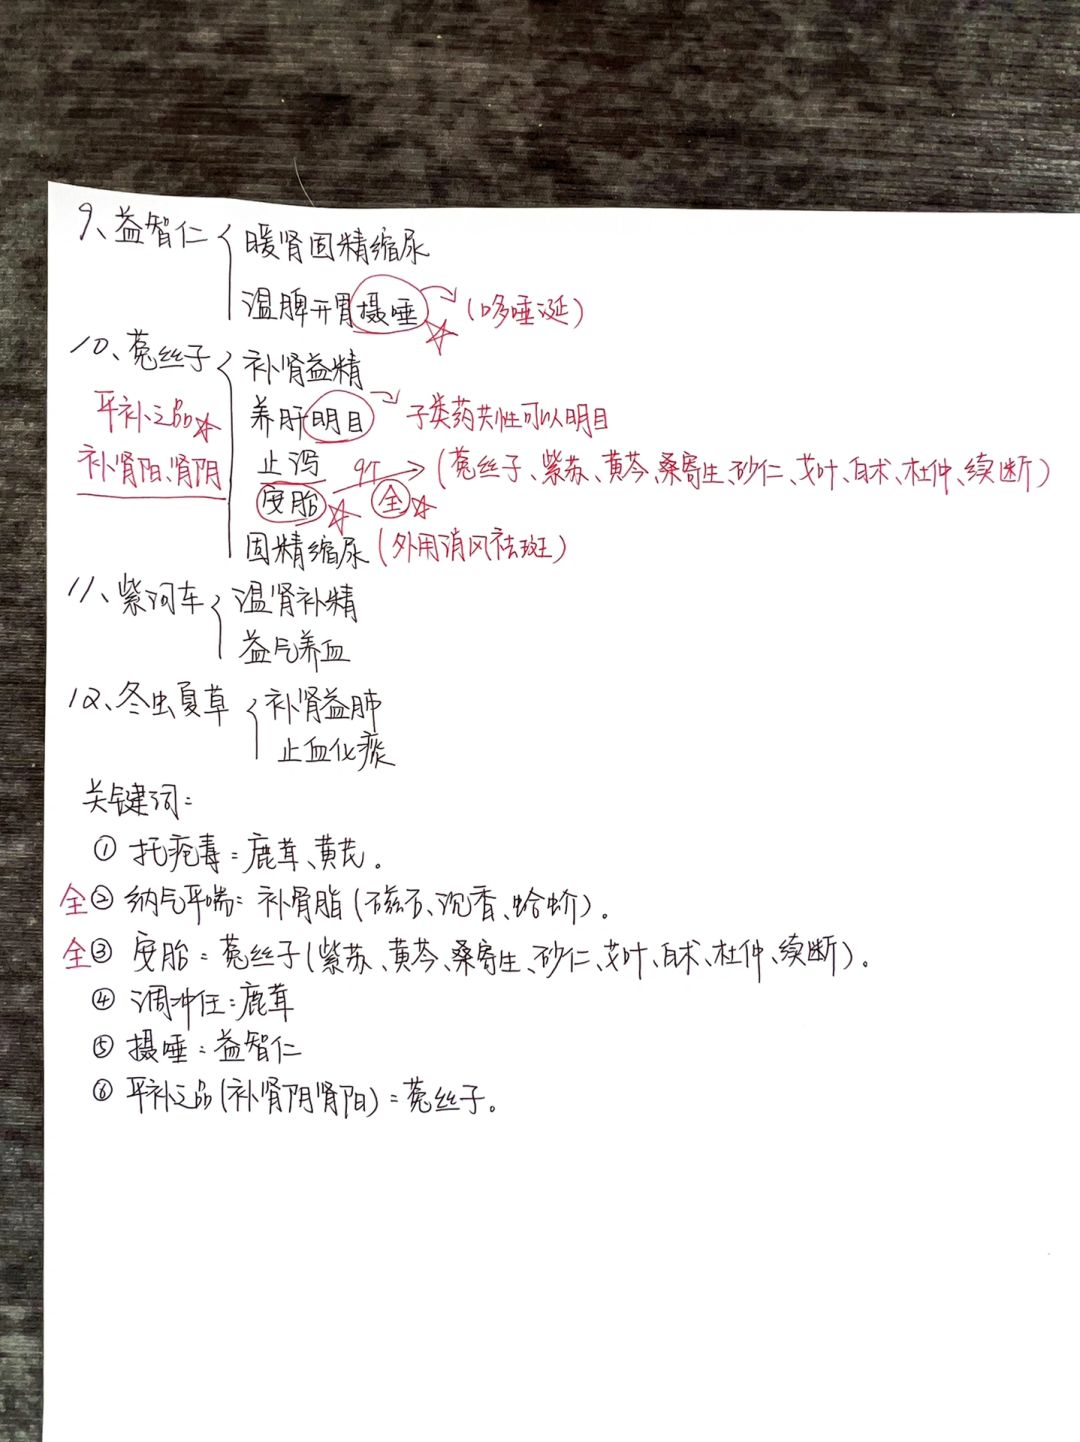 9、益智仁 { 暖肾固精缩尿
温脾开胃摄唾 (哆唾涎)
10、菟丝子 { 补肾益精
平补之品 养肝明目 子类药共性可以明目
补肾阳、肾阴 止泻 9个 (菟丝子、紫苏、黄芩、桑寄生、砂仁、艾叶、白术、杜仲、续断)
安胎 全
固精缩尿 (外用消风祛斑)
11、紫河车 { 温肾补精
益气养血
12、冬虫夏草 { 补肾益肺
止血化痰
关键词:
① 托疮毒:鹿茸、黄芪。
全② 纳气平喘:补骨脂(磁石、沉香、蛤蚧)。
全③ 安胎:菟丝子(紫苏、黄芩、桑寄生、砂仁、艾叶、白术、杜仲、续断)。
④ 调冲任:鹿茸
⑤ 摄唾:益智仁
⑥ 平补之品(补肾阴肾阳):菟丝子。